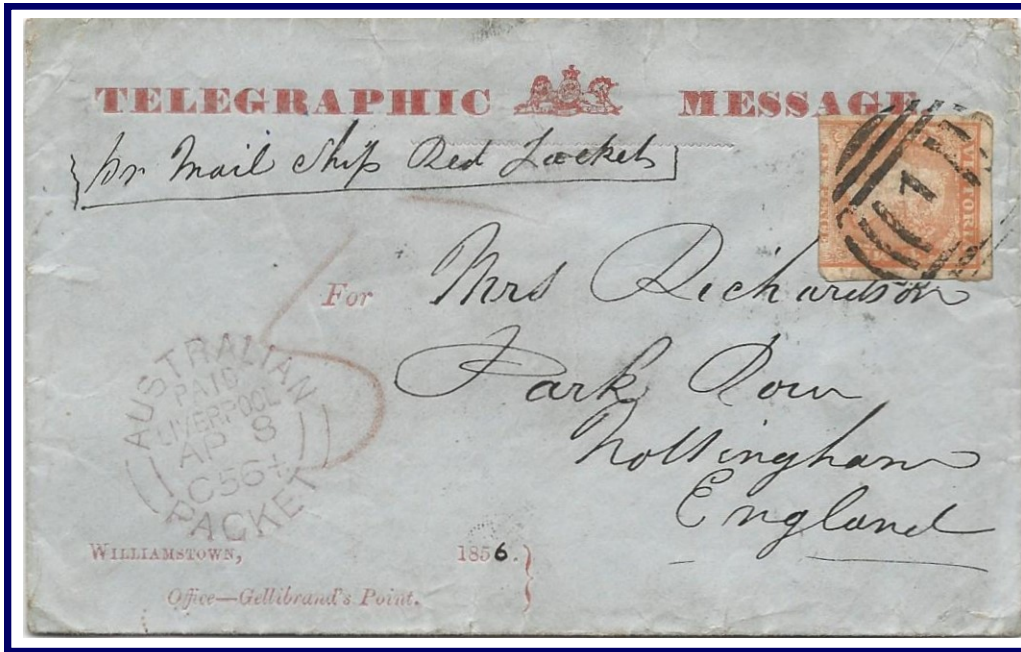 TELEGRAPHIC MESSAGE
per Mail Ship Red Jacket
VICTORIA
1
For Mrs Richardson
Park Row
Nottingham
England
5
AUSTRALIAN
PAID
LIVERPOOL
AP 8
C56
PACKET
WILLIAMSTOWN, 1856.
Office—Gellibrand's Point.